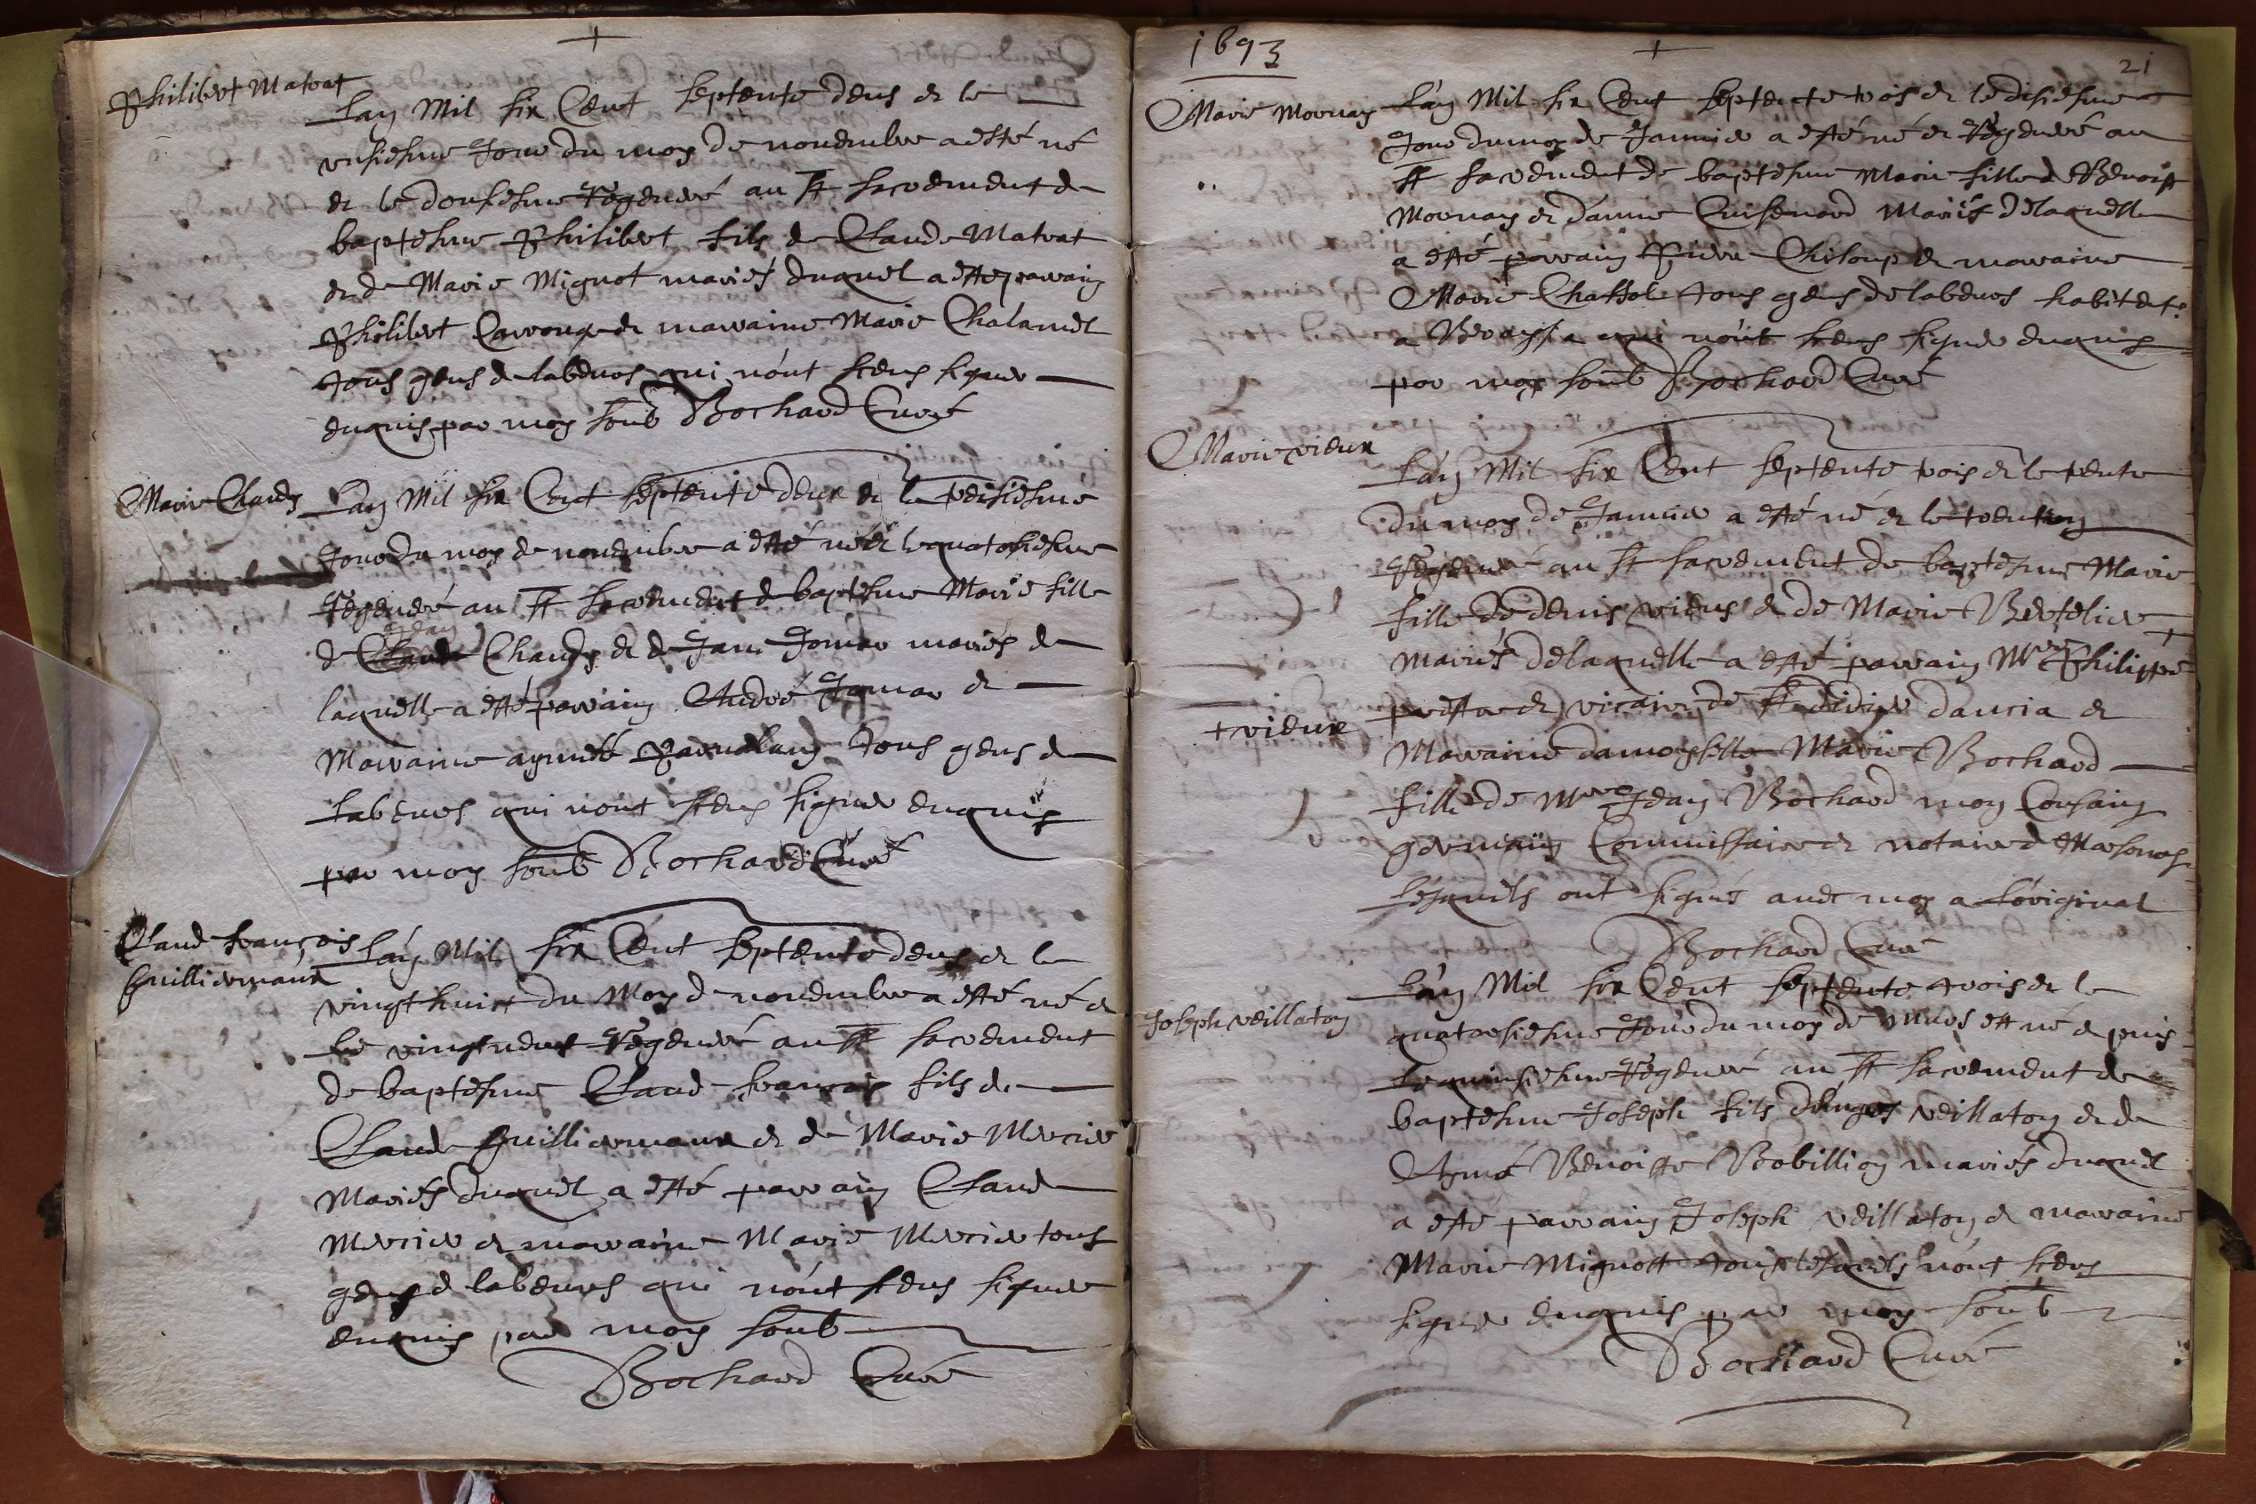 Philibert Matrat
Lan Mil six Cent septente deus et le
unsiesme Jour du moy de novembre a esté né
et le dousiesme Regeneré au St sacrement de
baptesme Philibert fils de Claude Matrat
et de Marie Mignot mariés duquel a esté parrain
Philibert Carronge et marraine Marie Chalamel
tous gens de labeurs qui nónt sceus signer
enquis par moy soub Bochard Curé
Marie Chandy
Lan Mil six Cent septente deux et le treisiesme
Jour du moy de novembre a esté né et le quatorsiesme
Regeneré au St sacrement de baptesme Marie fille
de Jean Chandy et de Jane Jomar mariés de
laquelle a esté parrain André Jomar et
Marraine tous gens de
labeurs qui nont sceus signer enquis
par moy soub Bochard Curé
Claud francois
Guilliermaux
Lán Mil six Cént septente deus et le
vingt huit du Moy de novembre a esté né et
le vingt neuf Regeneré au St sacrement
de baptesme Claud francois fils de
Claude Guilliermaux et de Marie Mercier
Mariés duquel a esté parrain Claude
Mercier et marraine Marie Mercier tous
gens de labeurs qui nónt sceus signer
enquis par moy soub
Bochard Curé
1693
21
Marie Mornay
Lán Mil six Cent septente trois et le disiesme
Jour du moy de Janvier a esté né et Regeneré au
St sacrement de baptesme Marie fille de Benoist
Mornay et dánne Cuisenard Mariés delaquelle
a esté parrain Pierre Chiloup et marraine
Marie Chassole tous gens de labeurs habitent
a qui nónt sceus signer enquis
par moy soub Bochard Curé
Marie vieux
Lán Mil six Cent septente trois et le trente
du moy de Janvier a esté né et le trentun
Regeneré au St sacrement de baptesme Marie
fille de denis vieus et de Marie Bertelier
Mariés delaquelle a esté parrain Mre Philippe +
+ vieux
prestre et vicaire de St didier daucia et
Marraine damoyselle Marie Bochard
fille de Mre Jean Bochard mon Cousain
germain Commissaire et notaire de Marsonas
lésquels ont signés avec moy a lóriginal
Bochard Curé
Joseph veillaton
Lán Mil six Cent septente trois et le
quatorsiesme Jour du moy de Mars est né et puis
le quinsiesme Regeneré au St sacrement de
baptesme Joseph fils veillaton et de
Aymé Benoiste Bobillion mariés duquel
a esté parrain Joseph veillaton et marraine
Marie Mignott tous lesquels nónt sceus
signer enquis par moy soub
Bochard Curé